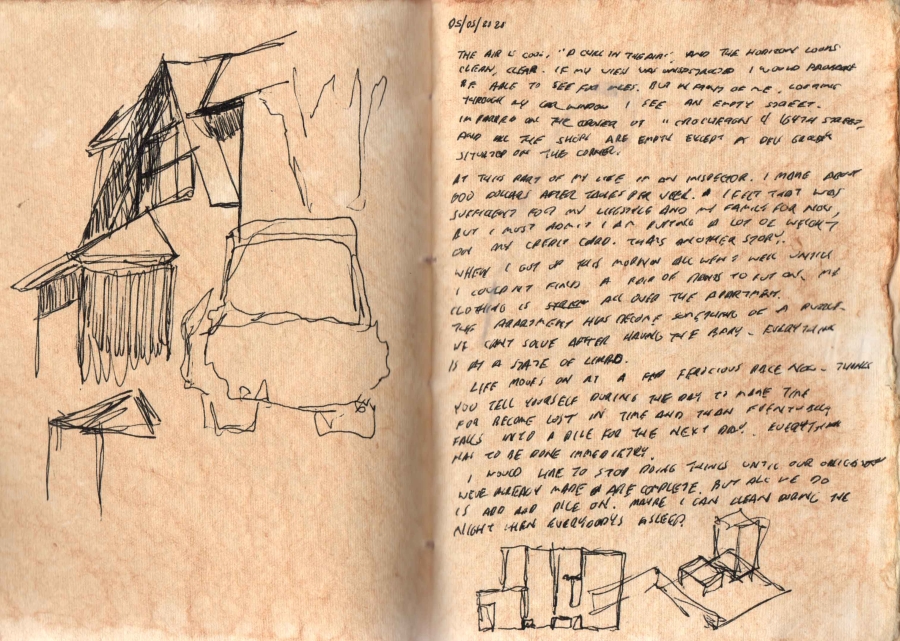 05/05/2021
THE AIR IS COOL, "A CURL IN THE AIR". AND THE HORIZON LOOKS
CLEAN, CLEAR. IF MY VIEW WAS UNOBSTRUCTED I WOULD PROBABLY
BE ABLE TO SEE FOR MILES. BUT IN FRONT OF ME, LOOKING
THROUGH MY CAR WINDOW I SEE AN EMPTY STREET.
IM PARKED ON THE CORNER OF " & 164TH STREET,
AND ALL THE SHOPS ARE EMPTY EXCEPT A DELI
SITUATED ON THE CORNER.
AT THIS PART OF MY LIFE IM AN INSPECTOR. I MAKE ABOUT
DOLLARS AFTER TAXES PER WEEK. I FELT THAT WAS
SUFFICIENT FOR MY LIFESTYLE AND MY FAMILY FOR NOW,
BUT I MUST ADMIT I AM PUTTING A LOT OF WEIGHT
ON MY CREDIT CARD. THATS ANOTHER STORY.
WHEN I GOT UP THIS MORNIN ALL WENT WELL UNTIL
I COULDNT FIND A PAIR OF PANTS TO PUT ON. MY
CLOTHING IS ALL OVER THE APARTMENT.
THE APARTMENT HAS BECOME SOMETHING OF A PUZZLE
WE CANT SOLVE AFTER HAVING THE BABY - EVERYTHING
IS AT A STATE OF LIMBO.
LIFE MOVES ON AT A FEROCIOUS PACE NOW - THINGS
YOU TELL YOURSELF DURING THE DAY TO MAKE TIME
FOR BECOME LOST IN TIME AND THAN EVENTUALLY
FALLS INTO A PILE FOR THE NEXT DAY. EVERYTHING
HAS TO BE DONE IMMEDIATLY.
I WOULD LIKE TO STOP DOING THINGS UNTIL OUR OBLIGATION
WEVE ALREADY MADE ARE COMPLETE. BUT ALL WE DO
IS ADD AND PILE ON. MAYBE I CAN CLEAN DURING THE
NIGHT WHEN EVERYBODYS ASLEEP.